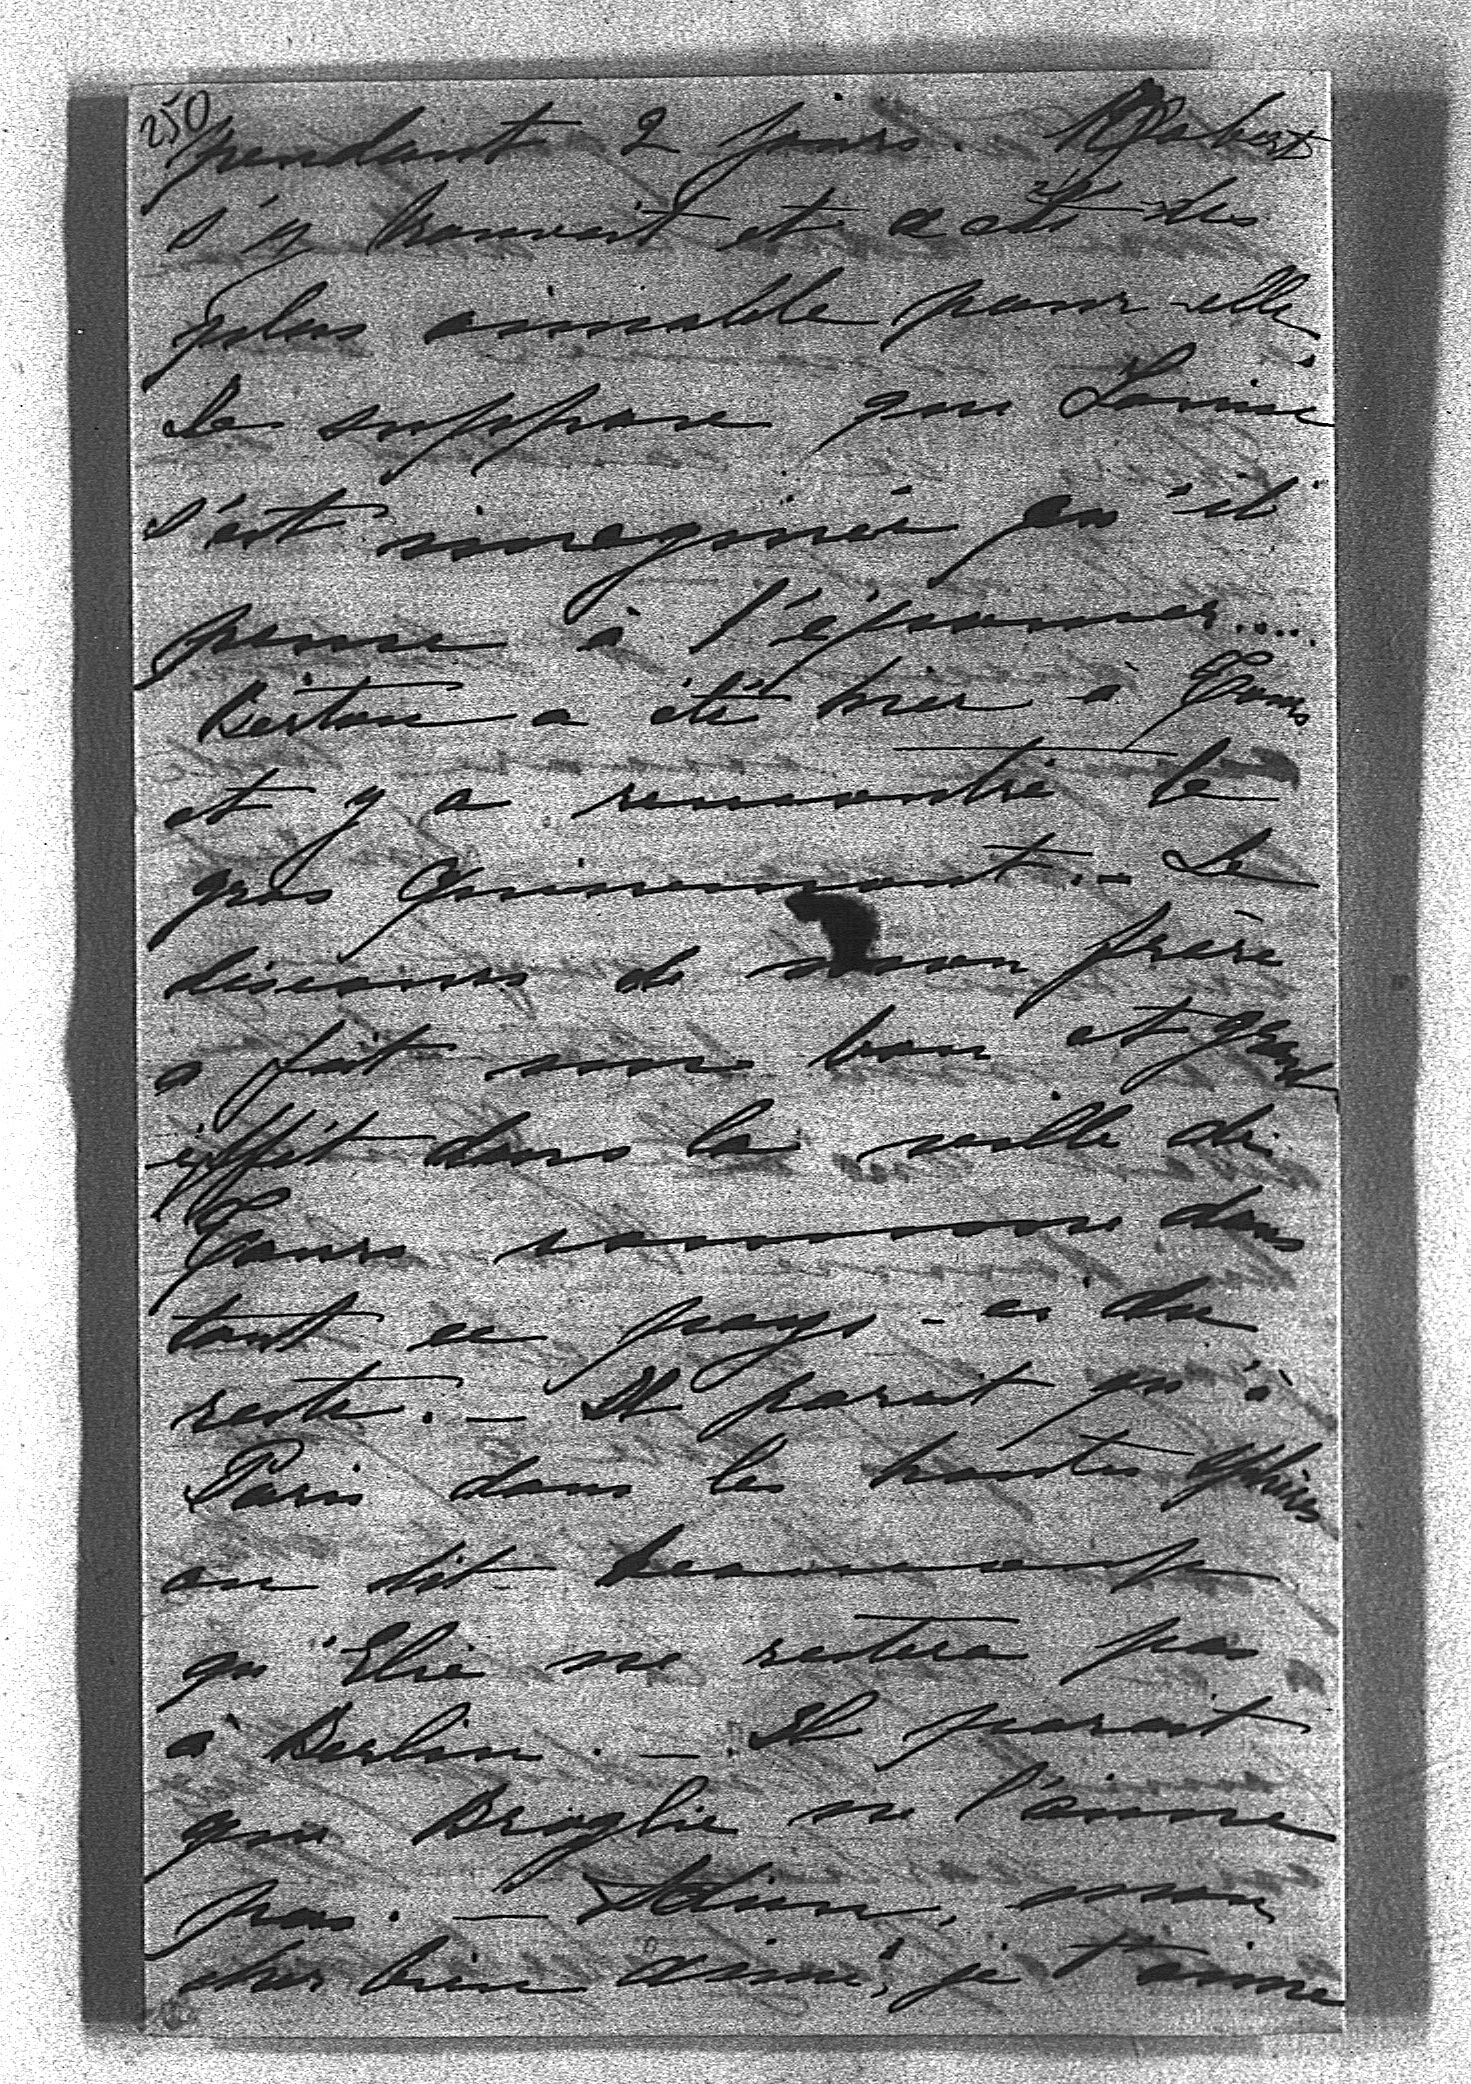 250
pendant 2 jours. Robert
s'y trouvait et a été des
plus aimable pour elle
Je suppose que Louise
s'est imaginée qu'il
pense à l'épouser.....
Berton a été hier à Tours
et y a rencontré le
gros Quinemont. - Le
discours de mon frère
a fait un bon et grand
effet dans la ville de
Tours comme dans
tout ce pays - ci du
reste. - Il parait qu'à
Paris dans les hautes sphères
on dit beaucoup
qu'Elie ne restera pas
à Berlin. - Il parait
que Broglie ne l'aime
pas. - Adieu, mon
cher bien aimé, je t'aime